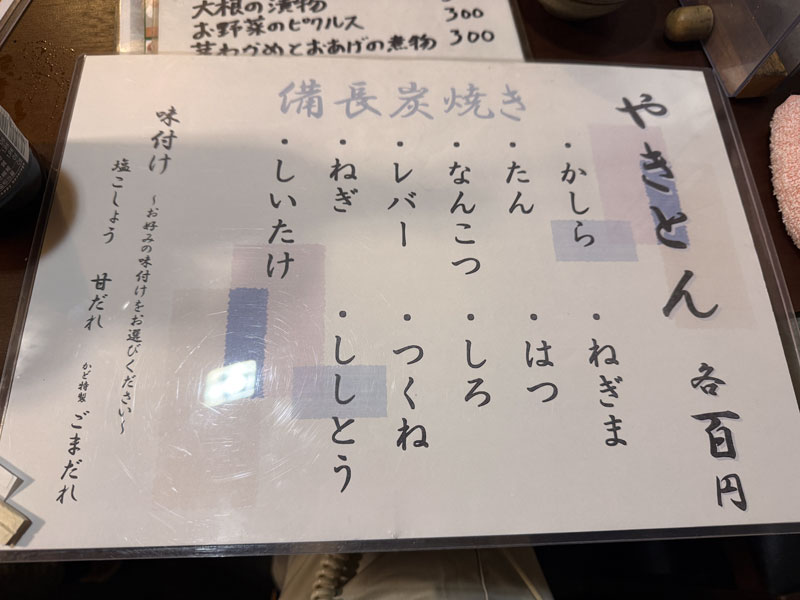 大根の漬物 300
お野菜のピクルス 300
茎わかめとおあげの煮物 300
やきとん 各百円
備長炭焼き
・かしら ・ねぎま
・たん ・はつ
・なんこつ ・しろ
・レバー ・つくね
・ねぎ ・ししとう
・しいたけ
味付け ～お好みの味付けをお選びください～
塩こしょう 甘だれ かど特製 ごまだれ